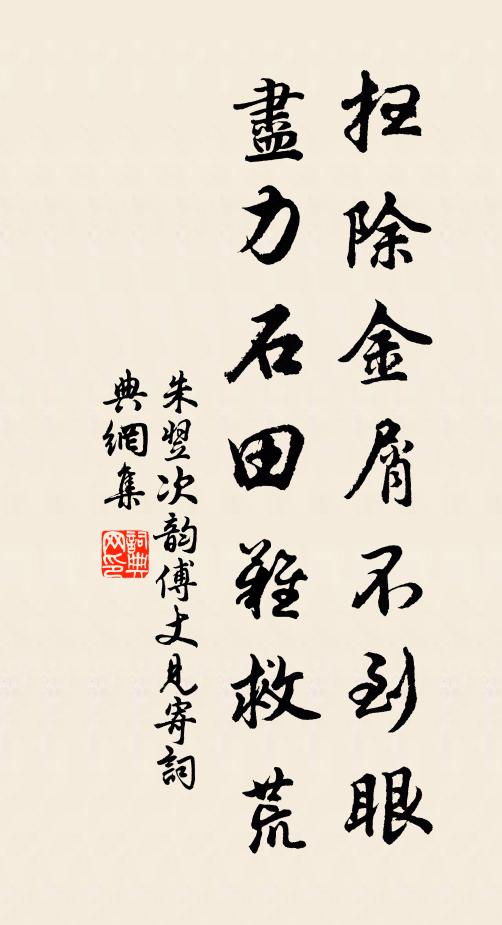 扫除金屑不到眼
盡力石田難救荒
朱翌次韵傅丈見寄詞
典網集
詞典网印